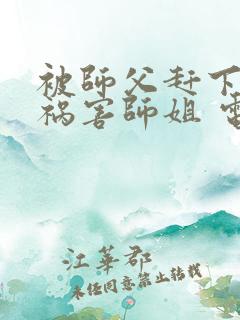 被師父赶下
祸害師姐
江華郡
未经同意禁止转载